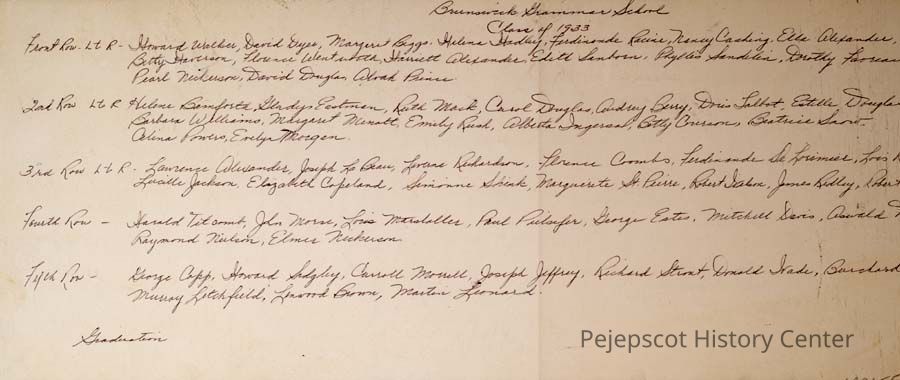 Brunswick Grammar School
Class of 1933
Front Row - L t R - Howard Walker, David Dyer, Margaret Boggs, Helena Hadley, Ferdinande Racine, Nancy Cushing, Ella Alexander,
Betty Haverson, Florence Wentworth, Harriett Alexander, Edith Sanborn, Phyllis Sandelin, Dorothy Favreau
Pearl Neilerson, David Douglas, Alvah Prince
2nd Row L t R Helene Bamforth, Gladys Eastman, Ruth Mack, Carol Douglas, Audrey Berry, Doris Talbot, Estelle Douglas
Barbara Williams, Margaret Menatt, Emily Rush, Alberta Ingersol, Betty Courson, Beatrice Snow
Celina Powers, Evelyn Morgan.
3rd Row L t R - Lawrence Alexander, Joseph La Beau, Richardson, Florence Coombs, Ferdinande De Lorimier, Lois
Lucille Jackson, Elizabeth Copeland, Simonne Marguerite St Pierre, Robert James Ridley, Robert
Fourth Row - Harald Titcomb, John Morse, Lois Marsteller, Paul Pulsifer, George Estes, Mitchell Davis, Oswald
Raymond Neilson, Elmer Nickerson
Fifth Row - George Copp, Howard Sedgley, Carroll Morrell, Joseph Jeffrey, Richard Stront, Donald Wade, Burchard
Murray Litchfield, Linwood Brown, Martin Leonard.
Graduation
Pejepscot History Center